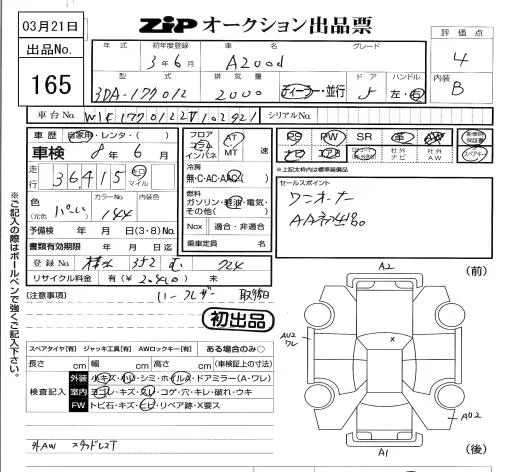 03月21日
ZIP オークション出品票
出品No.
165
年式 初年度登録 車名 グレード
3年6月 A200d
評価点
4
型式 排気量 ドア ハンドル
3DA-177012 2000 ディーラー・並行 5 左・右
内装
B
車台No. W1K1770122J102921 シリアルNo.
車歴 自家用・レンタ・( )
車検 8年 6月
走行 36,415 キロ マイル
色(元色) カラーNo. 内装色
144
予備検 年 月 日(3・8)No.
書類有効期限 年 月 日迄
登録No. 352 む 724
リサイクル料金 有(¥ ) 未
フロア コラム インパネ AT MT 速
冷房
無・C・AC・AAC
燃料
ガソリン・軽油・電気・その他( )
Nox 適合・非適合
乗車定員 名
PS PW SR 革 AW
ナビ エアB 社外ナビ 社外AW
※上記太枠内は標準装備品
セールスポイント
ワンオーナー
(注意事項)
初出品
スペアタイヤ[有] ジャッキ工具[有] AWロックキー[有] ある場合のみ○
長さ cm 幅 cm 高さ cm (車検証上の寸法)
検査記入
外装 小キズ・凹・シミ・ホイルA・ドアミラー(A・ワレ)
室内 ヨゴレ・キズ・スレ・コゲ・穴・キレ・破れ・ウキ
FW トビ石・キズ・ヒビ・リペア跡・X要ス
外AW スタッドレスT
※ご記入の際はボールペンで強くご記入下さい。
(前)
A2
AU2
ワレ
x
AU2
A1
(後)